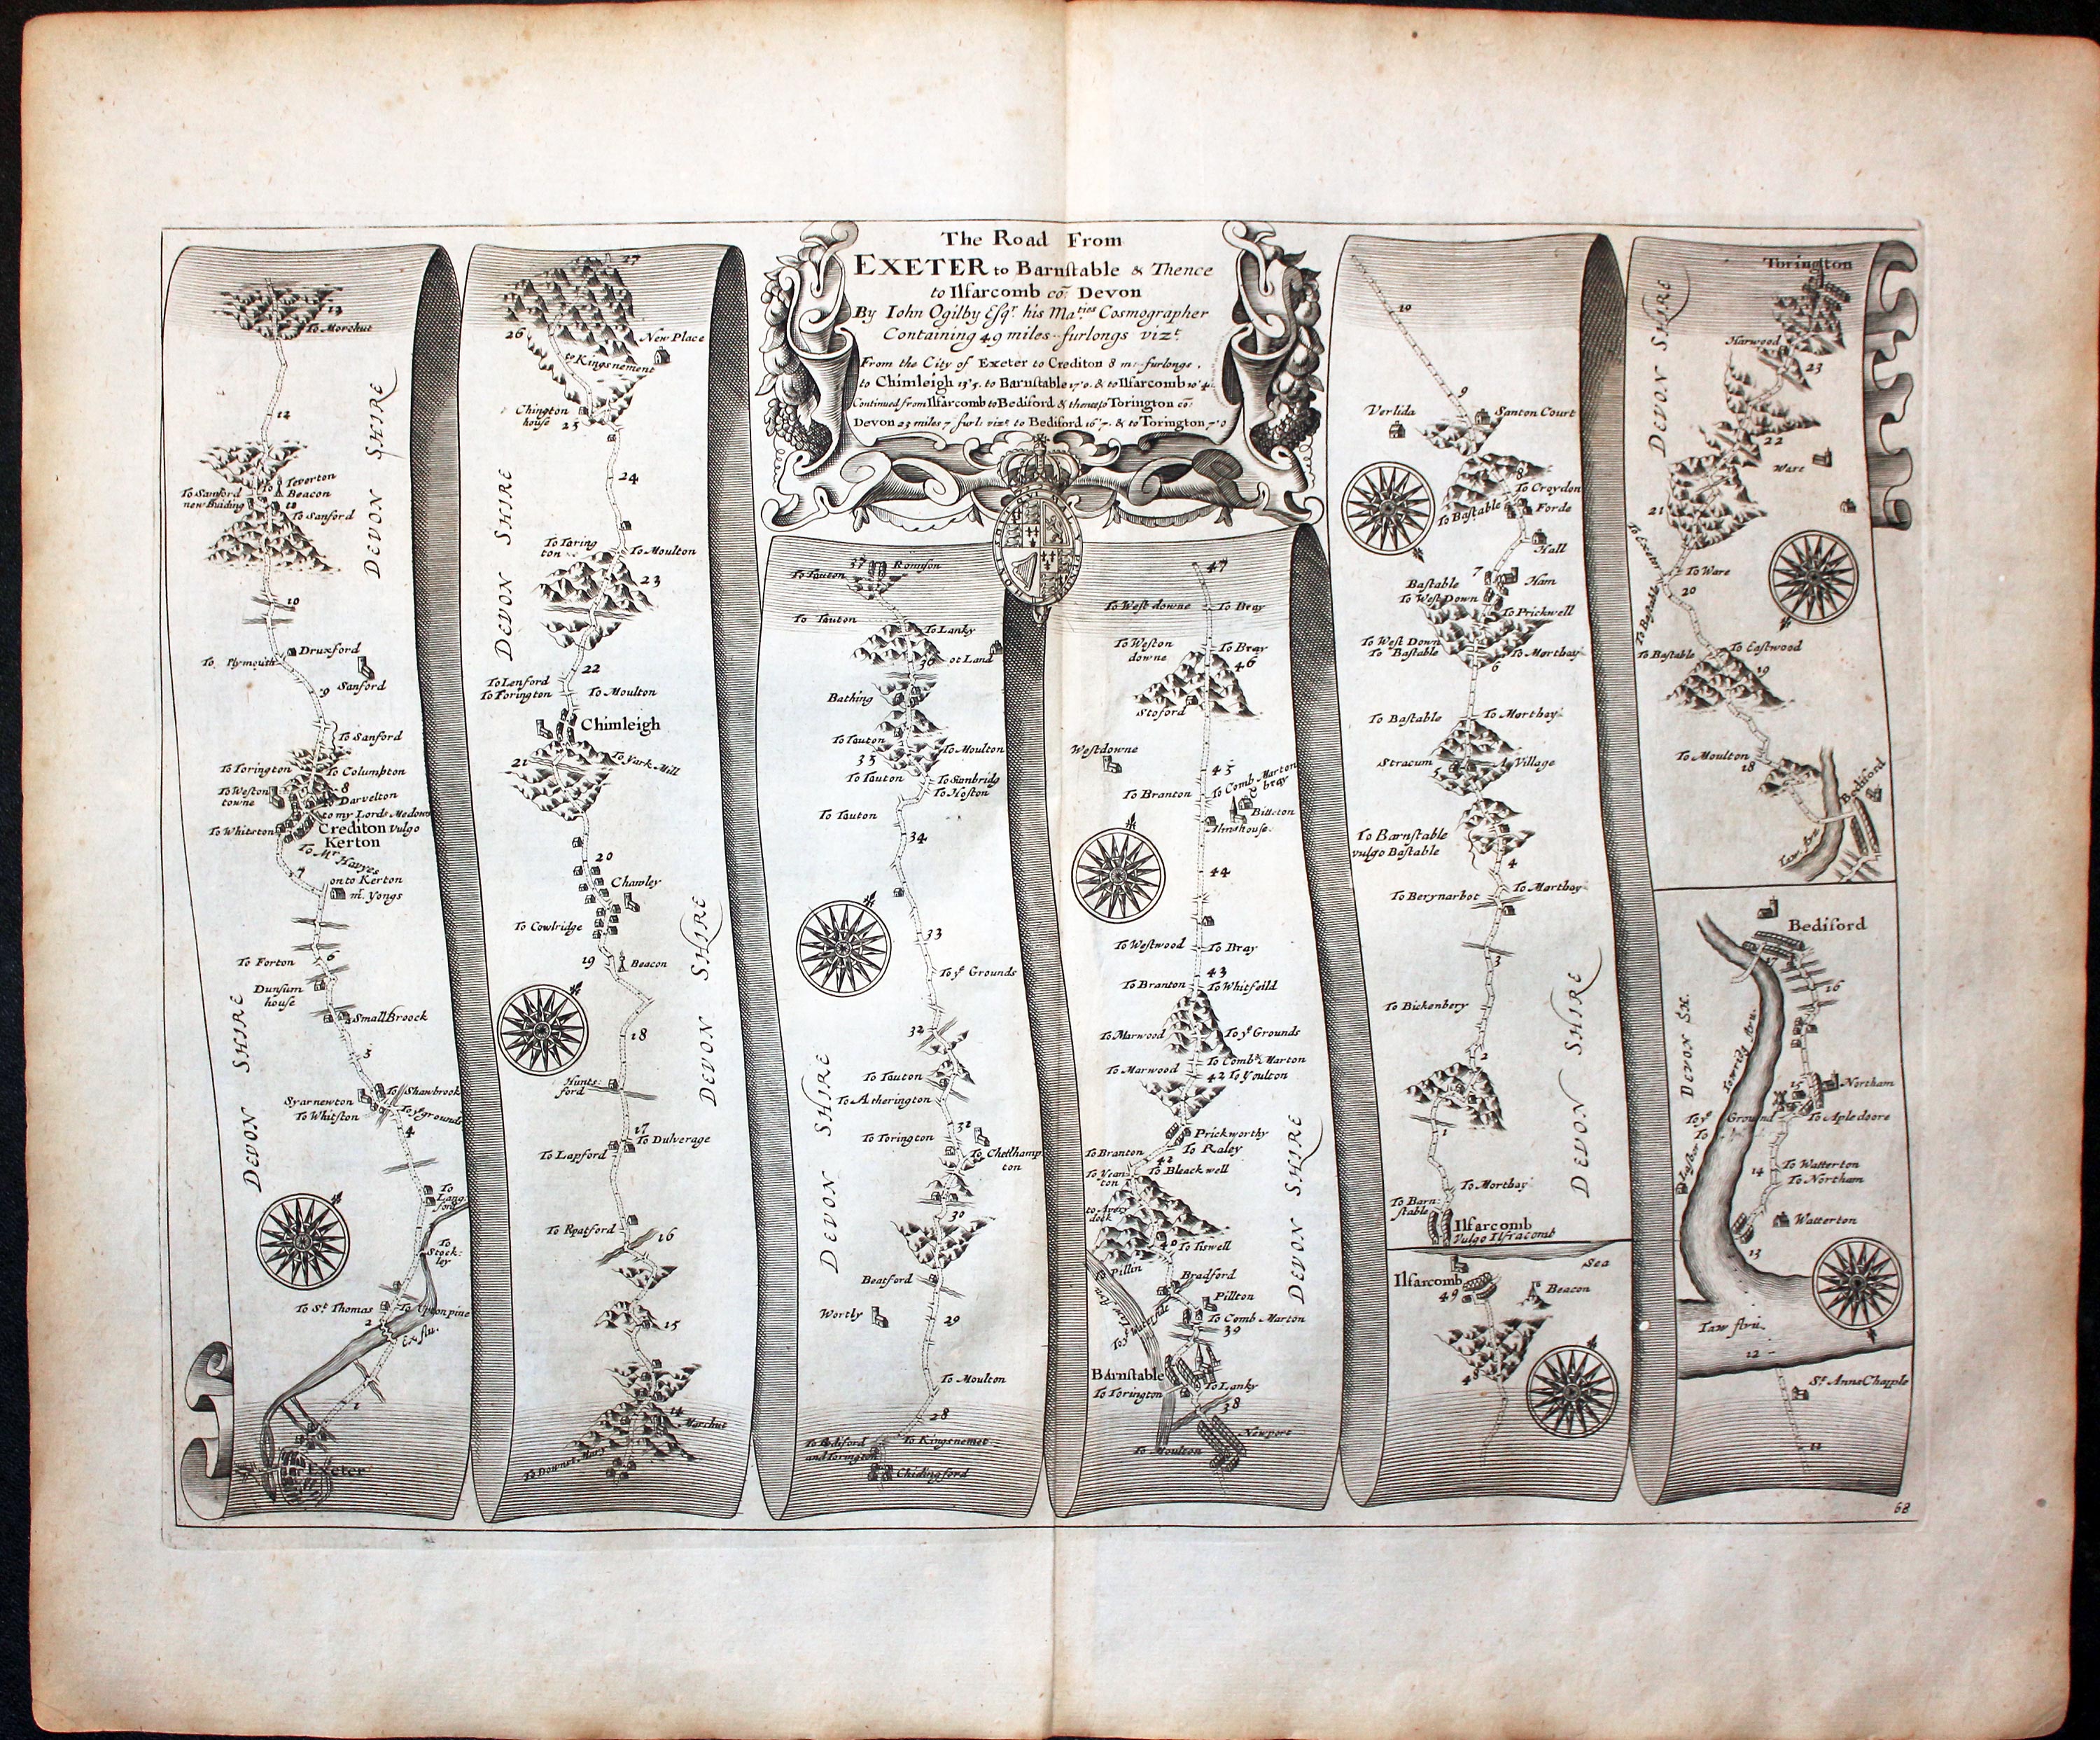 The Road From
EXETER to Barnstable & Thence
to Ilfarcomb co: Devon
By Iohn Ogilby Esqr. his Maties Cosmographer
Containing 49 miles furlongs vizt.
From the City of Exeter to Crediton 8 m: furlongs,
to Chimleigh 13'5. to Barnstable 17'0. & to Ilfarcomb 10'4
Continued from Ilfarcomb to Bediford & thence to Torington co:
Devon 23 miles 7 furl: vizt. to Bediford 16'7. & to Torington 7'0
13
To Morchut
12
DEVON SHIRE
To Teverton
Beacon
To Sanford
new Buiding
11
To Sanford
10
Druxford
To Plymouth
9
Sanford
To Sanford
To Torington
To Columpton
To Weston
towne
8
To Darvelton
to my Lords Medows
To Whitston
Crediton vulgo
Kerton
To Mr. Hayes
7
onto Kerton
mr. Yongs
To Forton
6
Dunsum
house
Small Broock
5
DEVON SHIRE
To Shawbrook
Syarnewton
To ye grounds
To Whitston
4
To
Lang
ford
To
Stock:
ley
To St. Thomas
To Uptonpine
2
Ex flu.
1
Exeter
27
26
New Place
to Kingsnement
Chington
house
25
24
DEVON SHIRE
To Taring
ton
To Moulton
23
22
To Lenford
To Torington
To Moulton
Chimleigh
21
To Vark Mill
20
Chawley
To Cowlridge
19
Beacon
18
DEVON SHIRE
Hunts:
ford
17
To Dulverage
To Lapford
To Roatford
16
15
14
Morchut
37
Romson
To Tauton
To Tauton
To Lanky
36
ot Land
Bathing
To Tauton
To Moulton
35
To Tauton
To Sonbridg
To Hoston
To Tauton
34
33
To ye Grounds
32
To Tauton
To Atherington
DEVON SHIRE
32
To Torington
To Chetthamp
ton
30
Beatford
Worthy
29
To Moulton
28
To Bediford
and Torington
To Kingsnemet
Chidingford
47
To West downe
To Bray
To Weston
downe
To Bray
46
Stoford
Westdowne
45
To Comb Marton
& bray
To Branton
Bittston
Almshouse
44
To Westwood
To Bray
43
To Branton
To Whitfeild
To Marwood
To ye Grounds
To Comb: Marton
To Marwood
42
To Youlton
Prickworthy
To Branton
To Raley
42
To Bleackwell
DEVON SHIRE
To Tiswell
To Pillin
Bradford
Pillton
To Comb Marton
39
Barnstable
To Torington
To Lanky
38
Newport
To Moulton
10
9
Verlida
Santon Court
8
To Croydon
To Bastable
Forde
Hall
7
Bastable
Ham
To West Down
To Prickwell
To West Down
To Bastable
To Morthay
6
To Bastable
To Morthay
Stracum
5
A Village
To Barnstable
vulgo Bastable
4
To Berynarbot
To Morthay
3
To Bickenbery
2
DEVON SHIRE
1
To Morthay
To Barn:
stable
Ilfarcomb
Vulgo Ilfracomb
Sea
Ilfarcomb
49
Beacon
48
Torington
Harwood
23
DEVON SHIRE
22
Ware
21
To Exeter
To Ware
20
To Bastable
To Bastable
To Eastwood
19
To Moulton
18
Bediford
Taw flu:
Bediford
17
16
DEVON SH.
Towridg flu.
15
Northam
To ye
Ground
To Apledoore
14
To Watterton
To Northam
Watterton
13
Taw flu:
12
St. Anns Chapple
11
68